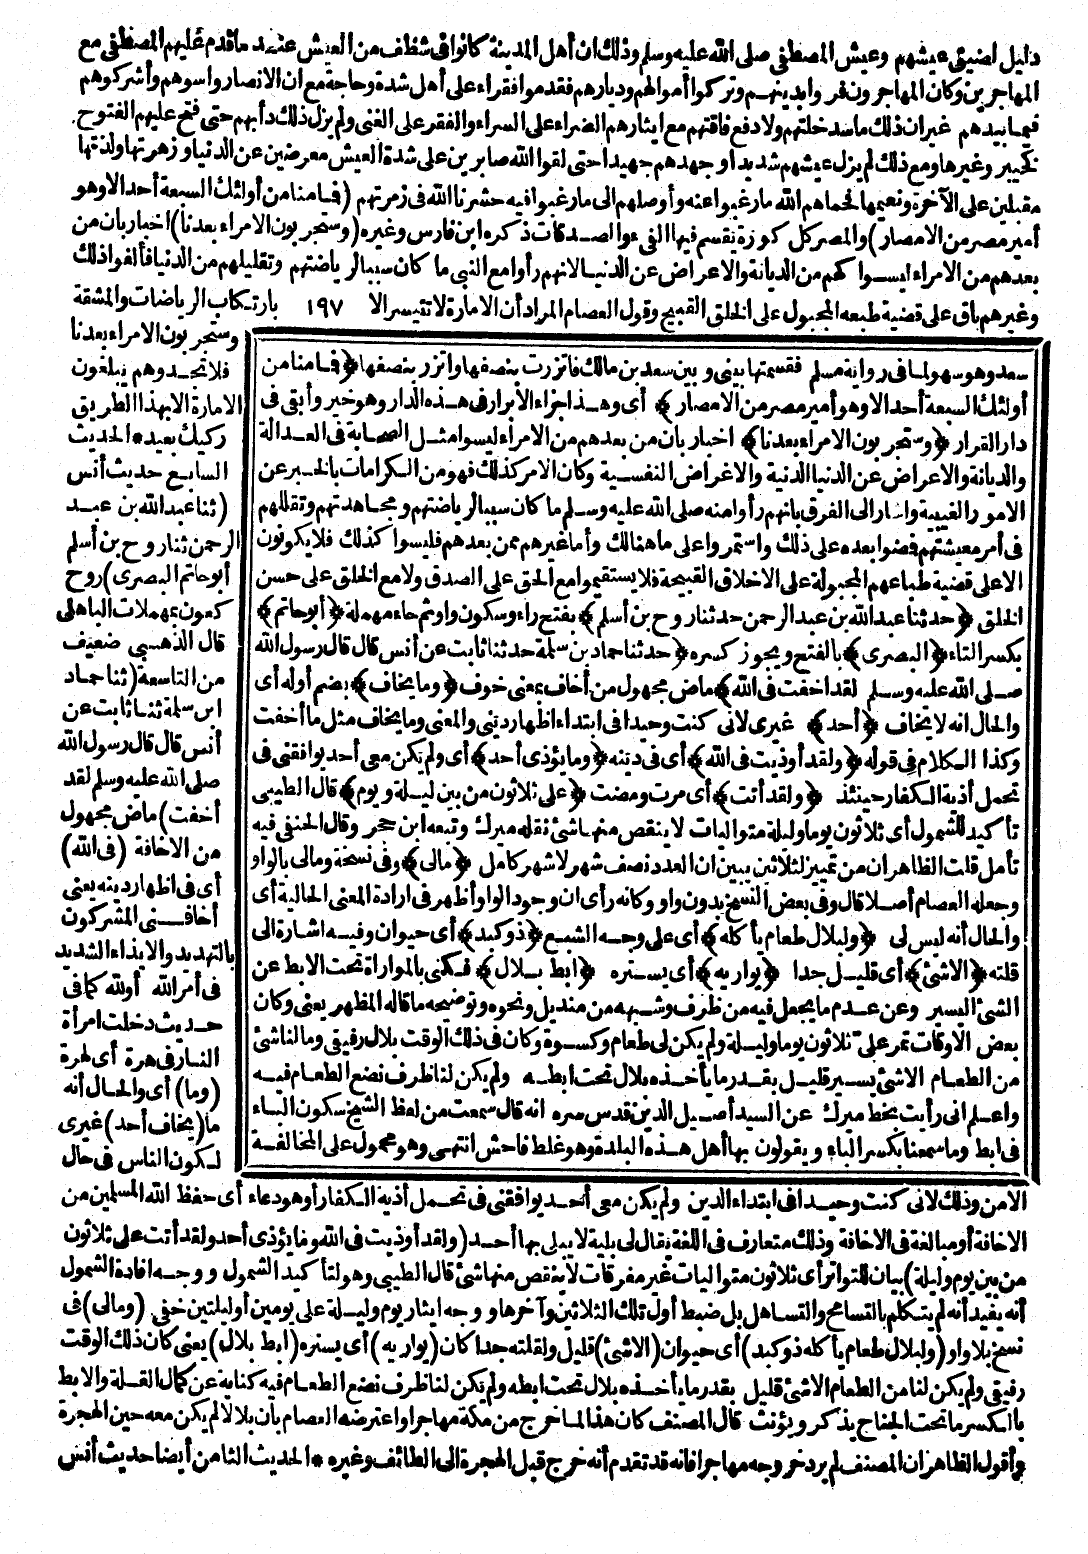 دليل لضيق عيشهم وعيش المصطفى صلى الله عليه وسلم وذلك ان أهل المدينة كانوا في شظف من العيش عند ما قدم عليهم المصطفى مع
المهاجرين وكان المهاجرون فروا بدينهم وتركوا أموالهم وديارهم فقدموا فقراء على أهل شدة وحاجة مع ان الانصار واسوهم وأشركوهم
فيما بيدهم غير ان ذلك ما سد خلتهم ولا دفع فاقتهم مع ايثارهم الضراء على السراء والفقر على الغنى ولم يزل ذلك دأبهم حتى فتح عليهم الفتوح
كخيبر وغيرها ومع ذلك لم يزل عيشهم شديدا وجهدهم جهيدا حتى لقوا الله صابرين على شدة العيش معرضين عن الدنيا وزهرتها ولذتها
مقبلين على الآخرة ونعيمها فحماهم الله ما رغبوا عنه وأوصلهم الى ما رغبوا فيه حشرنا الله في زمرتهم (فما منا من أولئك السبعة أحد الا وهو
أمير مصر من الامصار) والمصر كل كورة يقسم فيها الفىء والصدقات ذكره ابن فارس وغيره (وستجربون الامراء بعدنا) اخبار بان من
بعدهم من الامراء ليسوا كهم من الديانة والاعراض عن الدنيا لانهم رأوا مع النبي ما كان سببا لرياضتهم وتقليلهم من الدنيا فألفوا ذلك
وغيرهم باق على قضية طبعه المجبول على الخلق القبيح وقول العصام المراد أن الامارة لا تتيسر الا ١٩٧ بارتكاب الرياضات والمشقة
وستجربون الامراء بعدنا
فلا تجدوهم يبلغون
الامارة الا بهذا الطريق
ركيك بعيد * الحديث
السابع حديث أنس
(ثنا عبد الله بن عبد
الرحمن ثنا روح بن أسلم
أبو حاتم البصرى) روح
كعون بمهملات الباهلى
قال الذهبى ضعيف
من التاسعة (ثنا حماد
ابن سلمة ثنا ثابت عن
أنس قال قال رسول الله
صلى الله عليه وسلم لقد
أخفت) ماض مجهول
من الاخافة (فى الله)
أى فى اظهار دينه يعنى
أخافنى المشركون
بالتهديد والايذاء الشديد
فى أمر الله أو لله كما فى
حديث دخلت امرأة
النار فى هرة أى لهرة
(وما) أى والحال أنه
ما (يخاف أحد) غيرى
لكون الناس فى حال
سعد وهو سهو لما فى رواية مسلم فقسمتها بينى وبين سعد بن مالك فاتزرت بنصفها واتزر بنصفها ﴿فما منا من
أولئك السبعة أحد الا وهو أمير مصر من الامصار﴾ أى وهذا جزاء الأبرار فى هذه الدار وهو خير وأبقى فى
دار القرار ﴿وستجربون الامراء بعدنا﴾ اخبار بان من بعدهم من الامراء ليسوا مثل الصحابة فى العدالة
والديانة والاعراض عن الدنيا الدنية والاغراض النفسية وكان الامر كذلك فهو من الكرامات بالخبر عن
الامور الغيبية وأشار الى الفرق بانهم رأوا منه صلى الله عليه وسلم ما كان سببا لرياضتهم ومجاهدتهم وتقللهم
فى أمر معيشتهم فمضوا بعده على ذلك واستمروا على ما هنالك وأما غيرهم ممن بعدهم فليسوا كذلك فلا يكونون
الا على قضية طباعهم المجبولة على الاخلاق القبيحة فلا يستقيموا مع الحق على الصدق ولا مع الخلق على حسن
الخلق ﴿حدثنا عبد الله بن عبد الرحمن حدثنا روح بن أسلم﴾ بفتح راء وسكون واو ثم حاء مهملة ﴿أبو حاتم﴾
بكسر التاء ﴿البصرى﴾ بالفتح ويجوز كسره ﴿حدثنا حماد بن سلمة حدثنا ثابت عن أنس قال قال رسول الله
صلى الله عليه وسلم لقد اخفت فى الله﴾ ماض مجهول من أخاف بمعنى خوف ﴿وما يخاف﴾ بضم أوله أى
والحال انه لا يخاف ﴿أحد﴾ غيرى لانى كنت وحيدا فى ابتداء اظهار دينى والمعنى وما يخاف مثل ما أخفت
وكذا الكلام فى قوله ﴿ولقد أوذيت فى الله﴾ أى فى دينه ﴿وما يؤذى أحد﴾ أى ولم يكن معى أحد يوافقنى فى
تحمل أذية الكفار حينئذ ﴿ولقد أتت﴾ أى مرت ومضت ﴿على ثلاثون من بين ليلة ويوم﴾ قال الطيبى
تأكيد للشمول أى ثلاثون يوما وليلة متواليات لا ينقص منها شئ نقله ميرك وتبعه ابن حجر وقال الحنفى فيه
تأمل قلت الظاهر ان من تمييز لثلاثين يبين ان العدد نصف شهر لا شهر كامل ﴿مالى﴾ وفى نسخة ومالى بالواو
وجعله العصام أصلا قال وفى بعض النسخ بدون واو وكانه رأى ان وجود الواو أظهر فى ارادة المعنى الحالية أى
والحال أنه ليس لى ﴿ولبلال طعام يأكله﴾ أى على وجه الشبع ﴿ذو كبد﴾ أى حيوان وفيه اشارة الى
قلته ﴿الا شئ﴾ أى قليل جدا ﴿يواريه﴾ أى يستره ﴿ابط بلال﴾ فكنى بالمواراة تحت الابط عن
الشئ اليسير وعن عدم ما يجعل فيه من ظرف وشبهه من منديل ونحوه وتوضيحه ما قاله المظهر يعنى وكان
بعض الأوقات تمر على ثلاثون يوما وليلة ولم يكن لى طعام وكسوة وكان فى ذلك الوقت بلال رفيقى وما لنا شئ
من الطعام الا شئ يسير قليل بقدر ما يأخذه بلال تحت ابطه ولم يكن لنا ظرف نضع الطعام فيه
واعلم انى رأيت بخط ميرك عن السيد أصيل الدين قدس سره انه قال سمعت من لفظ الشيخ سكون الباء
فى ابط وما سمعنا بكسر الباء ويقولون بها أهل هذه البلدة وهو غلط فاحش انتهى وهو محمول على المخالفة
الامن وذلك لانى كنت وحيدا فى ابتداء الدين ولم يكن معى أحد يوافقنى فى تحمل أذية الكفار أو هو دعاء أى حفظ الله المسلمين من
الاخافة أو مبالغة فى الاخافة وذلك متعارف فى اللغة يقال لى بلية لا يبلى بها أحد (ولقد أوذيت فى الله وما يؤذى أحد ولقد أتت على ثلاثون
من بين يوم وليلة) بيان للتواتر أى ثلاثون متواليات غير مفرقات لا ينقص منها شئ قال الطيبى وهو لتأكيد الشمول ووجه افادة الشمول
أنه يفيد أنه لم يتكلم بالتسامح والتساهل بل ضبط أول تلك الثلاثين وآخرها ووجه ايثار يوم وليلة على يومين أو ليلتين خفى (ومالى) فى
نسخ بلا واو (ولبلال طعام يأكله ذو كبد) أى حيوان (الا شئ) قليل ولقلته جدا كان (يواريه) أى يستره (ابط بلال) يعنى كان ذلك الوقت
رفيقى ولم يكن لنا من الطعام الا شئ قليل بقدر ما يأخذه بلال تحت ابطه ولم يكن لنا ظرف نضع الطعام فيه كناية عن كمال القلة والابط
بالكسر ما تحت الجناح يذكر ويؤنث قال المصنف كان هذا لما خرج من مكة مهاجرا واعترضه العصام بأن بلالا لم يكن معه حين الهجرة
وأقول الظاهر ان المصنف لم يرد خروجه مهاجرا فانه قد تقدم أنه خرج قبل الهجرة الى الطائف وغيره * الحديث الثامن أيضا حديث أنس